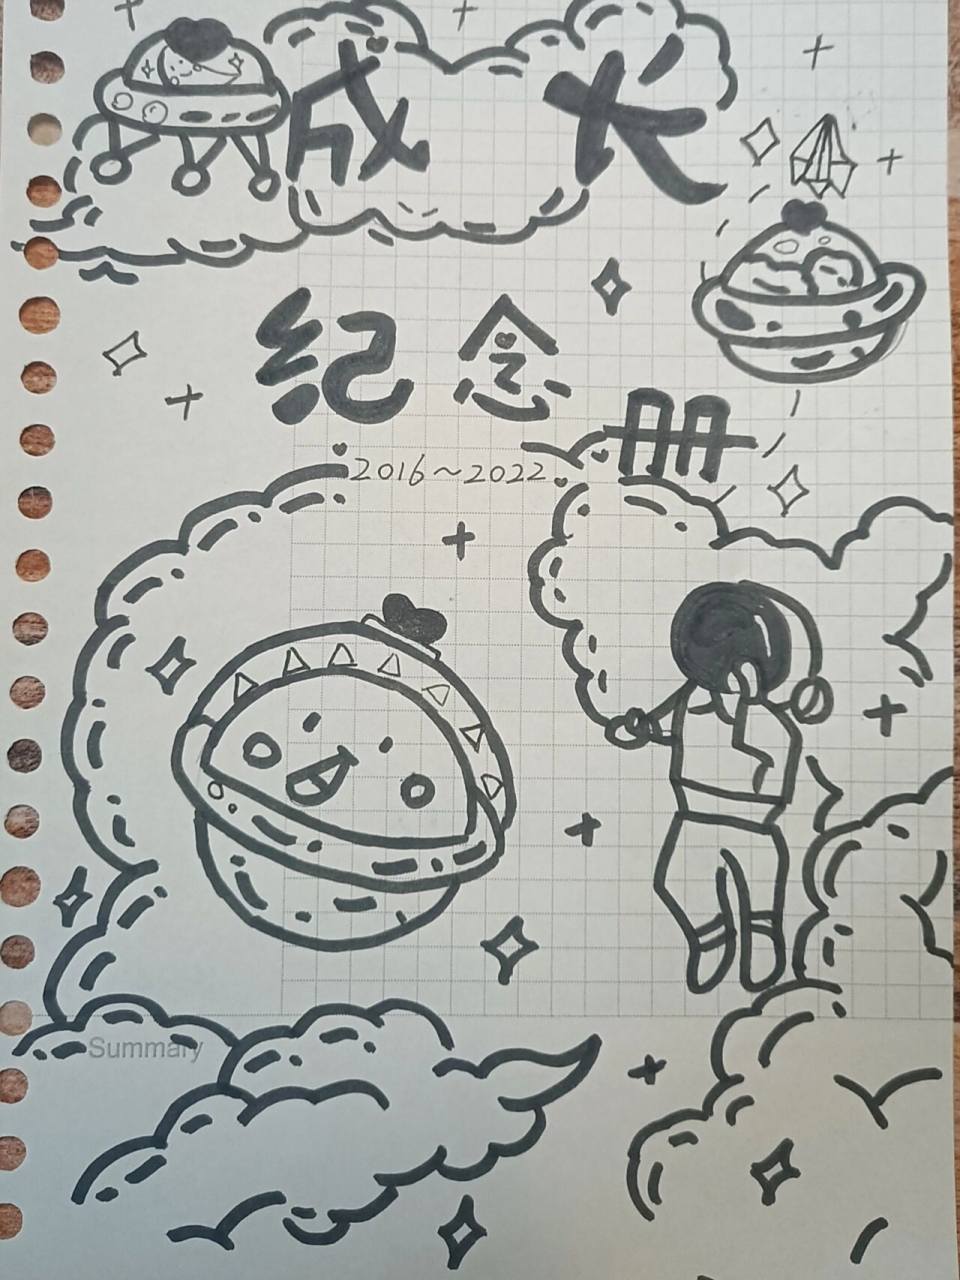 成长
纪念册
2016~2022.
Summary